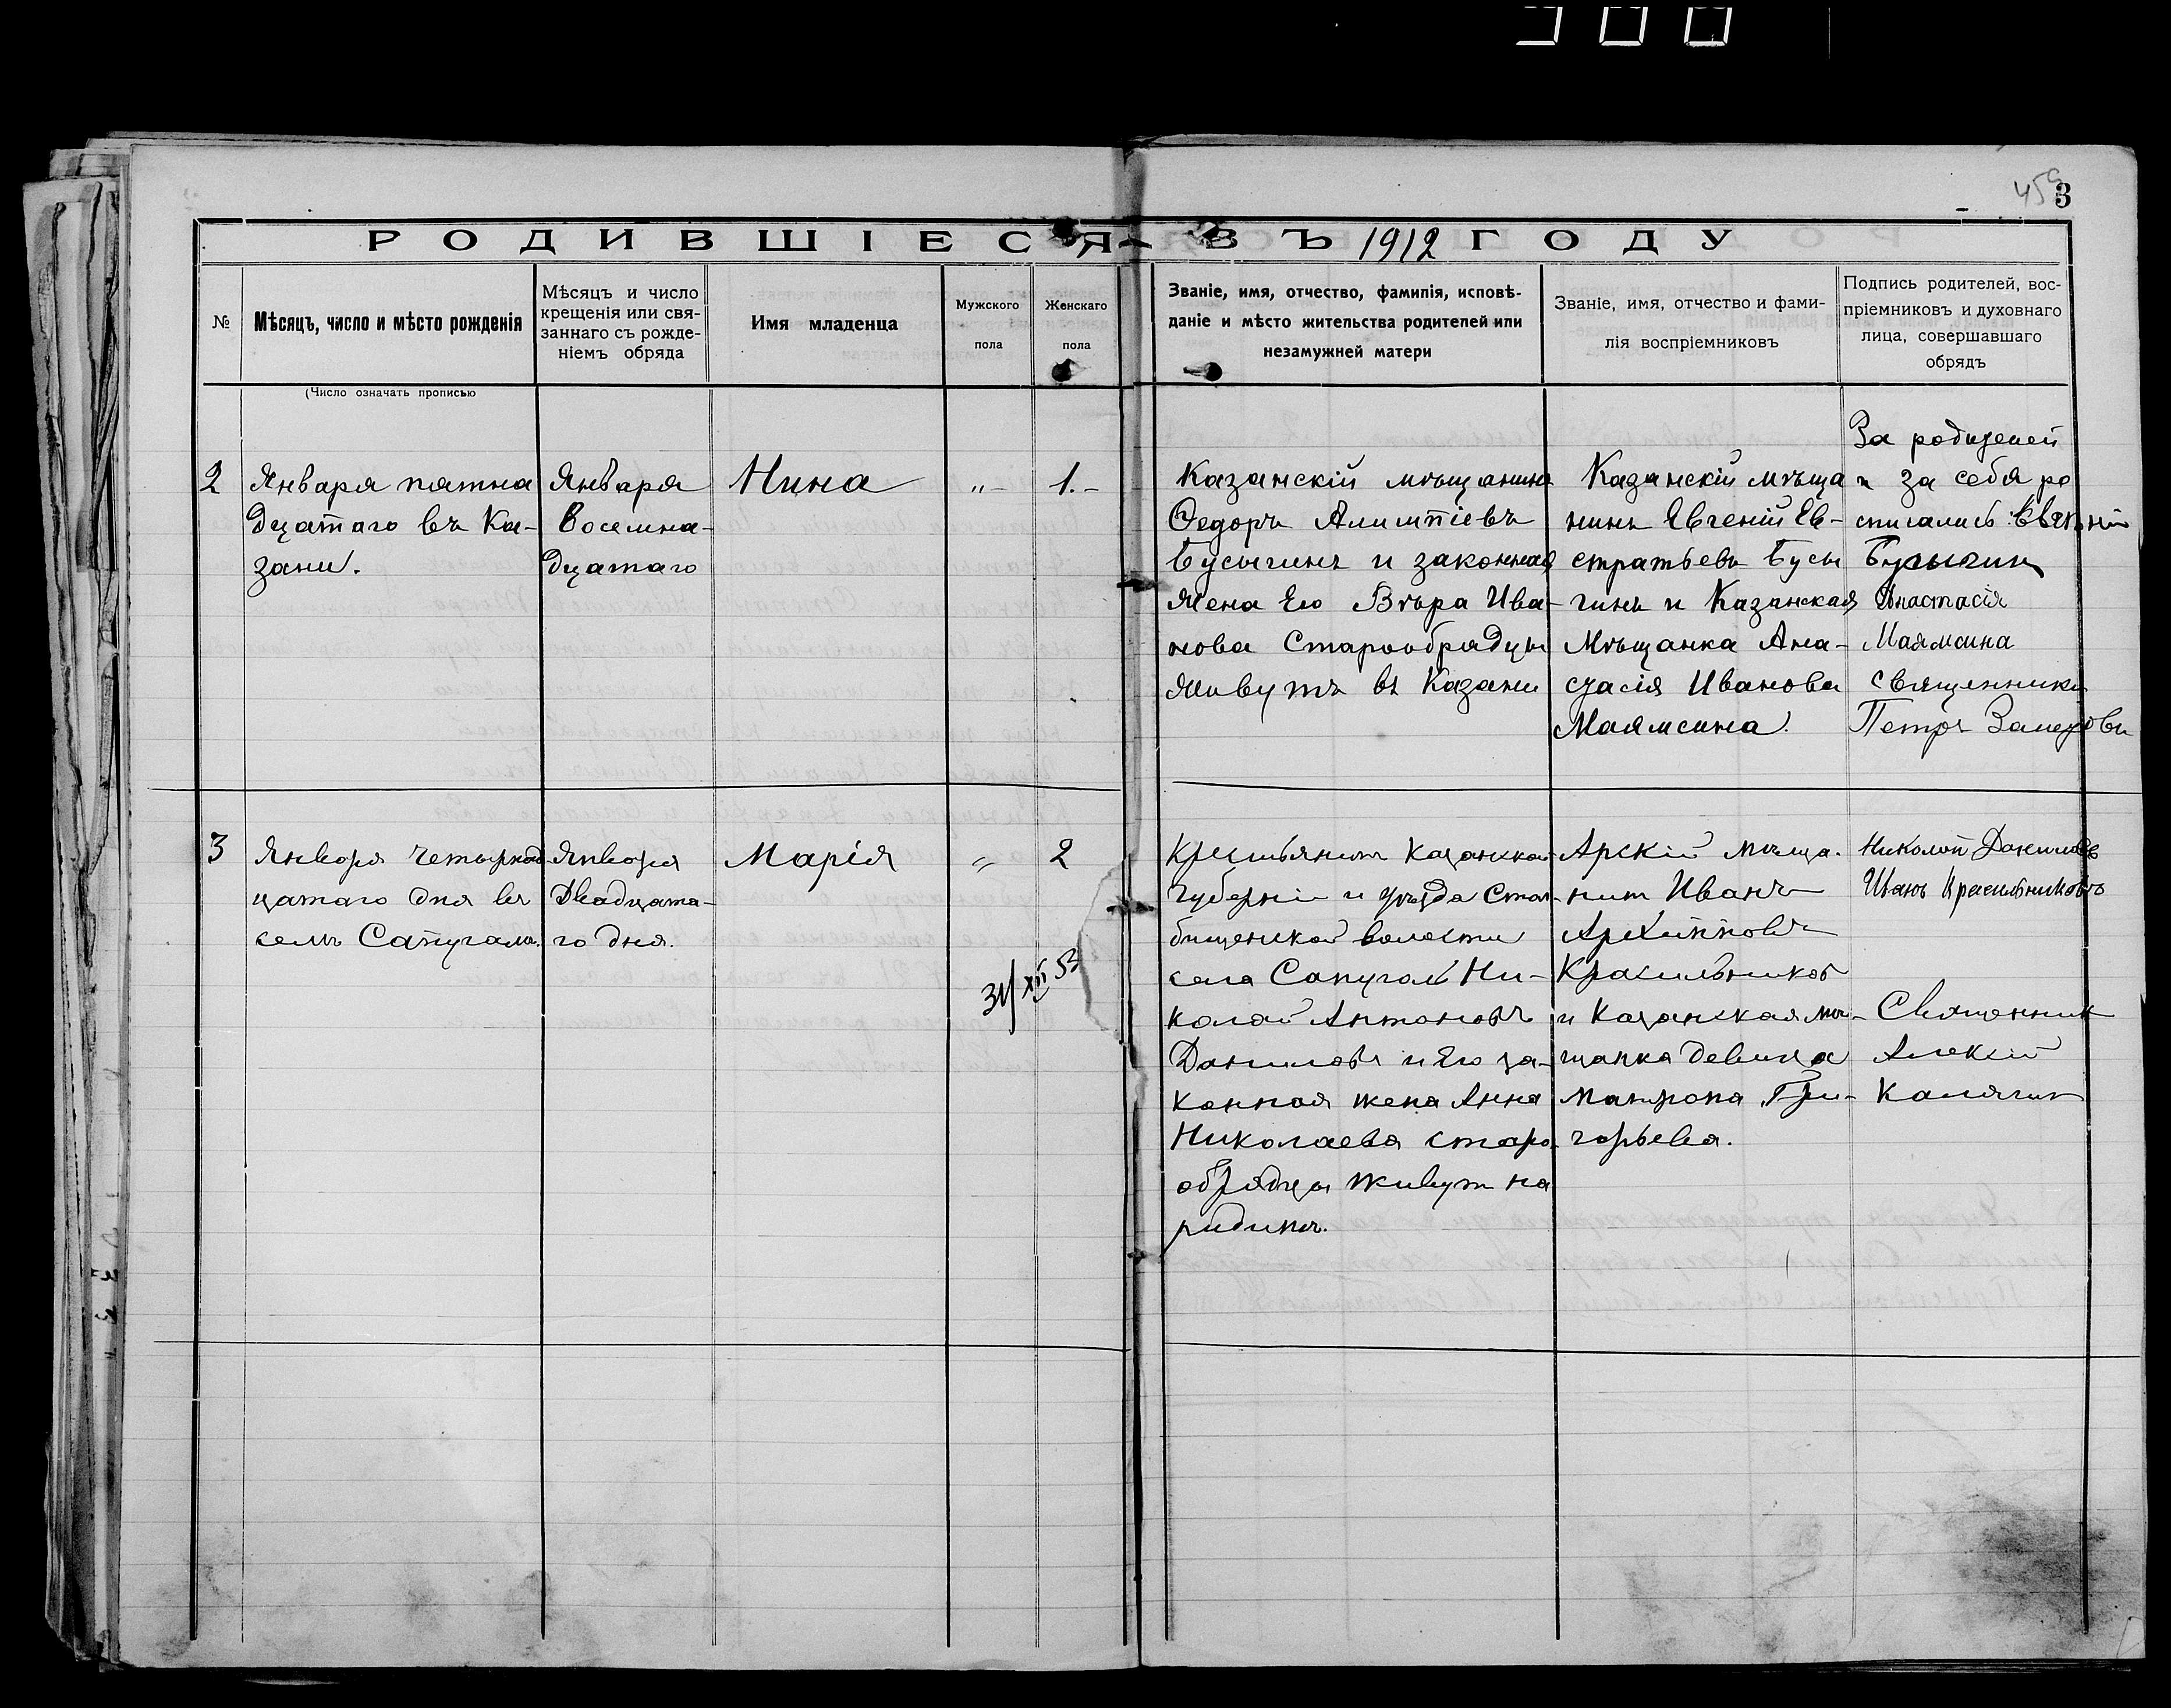 3
РОДИВШІЕСЯ ВЪ 1912 ГОДУ
№
Мѣсяцъ, число и мѣсто рожденія
Мѣсяцъ и число
крещенія или свя-
заннаго съ рожде-
ніемъ обряда
Имя младенца
Мужского
пола
Женскаго
пола
Званіе, имя, отчество, фамилія, исповѣ-
даніе и мѣсто жительства родителей или
незамужней матери
Званіе, имя, отчество и фами-
лія воспріемниковъ
Подпись родителей, вос-
пріемниковъ и духовнаго
лица, совершавшаго
обрядъ
(Число означать прописью
2
Января пятна
дцатаго въ Ка-
зани.
Января
Восемна-
дцатаго
Нина
"-
1.-
Казанскій мѣщанинъ
Ѳедоръ Алимпіевъ
Бусыгинъ и законная
жена Его Вѣра Ива-
нова Старообрядцы
живутъ въ Казани
Казанскій мѣща
нинъ Евгеній Ев-
стратьевъ Бусы
гинъ и Казанская
Мѣщанка Ана-
стасія Иванова
Маямсина.
За родителей
и за себя ро
списались: Евгеній
Бусыгин
Анастасія
Маямсина
священникъ
Петръ
3
Января четырнад-
цатаго дня въ
селѣ Сапугалъ.
Января
Двадцата-
го дня.
Марія
"
2
31/XII 53
Крестьянинъ Казанской
Губерніи и уѣзда Стол-
бищенской волости
села Сапуголь Ни-
колай Антоновъ
Даниловъ и Его за-
конная жена Анна
Николаева старо-
обрядцы живут на
родинѣ.
Арскій мѣща-
нинъ Иванъ
Архипповъ
Красильников
и Казанская мѣ-
щанка девица
Матрона Гри-
горьева.
Николай Даниловъ
Иванъ Красильниковъ
Священник
Алексій
Калягин